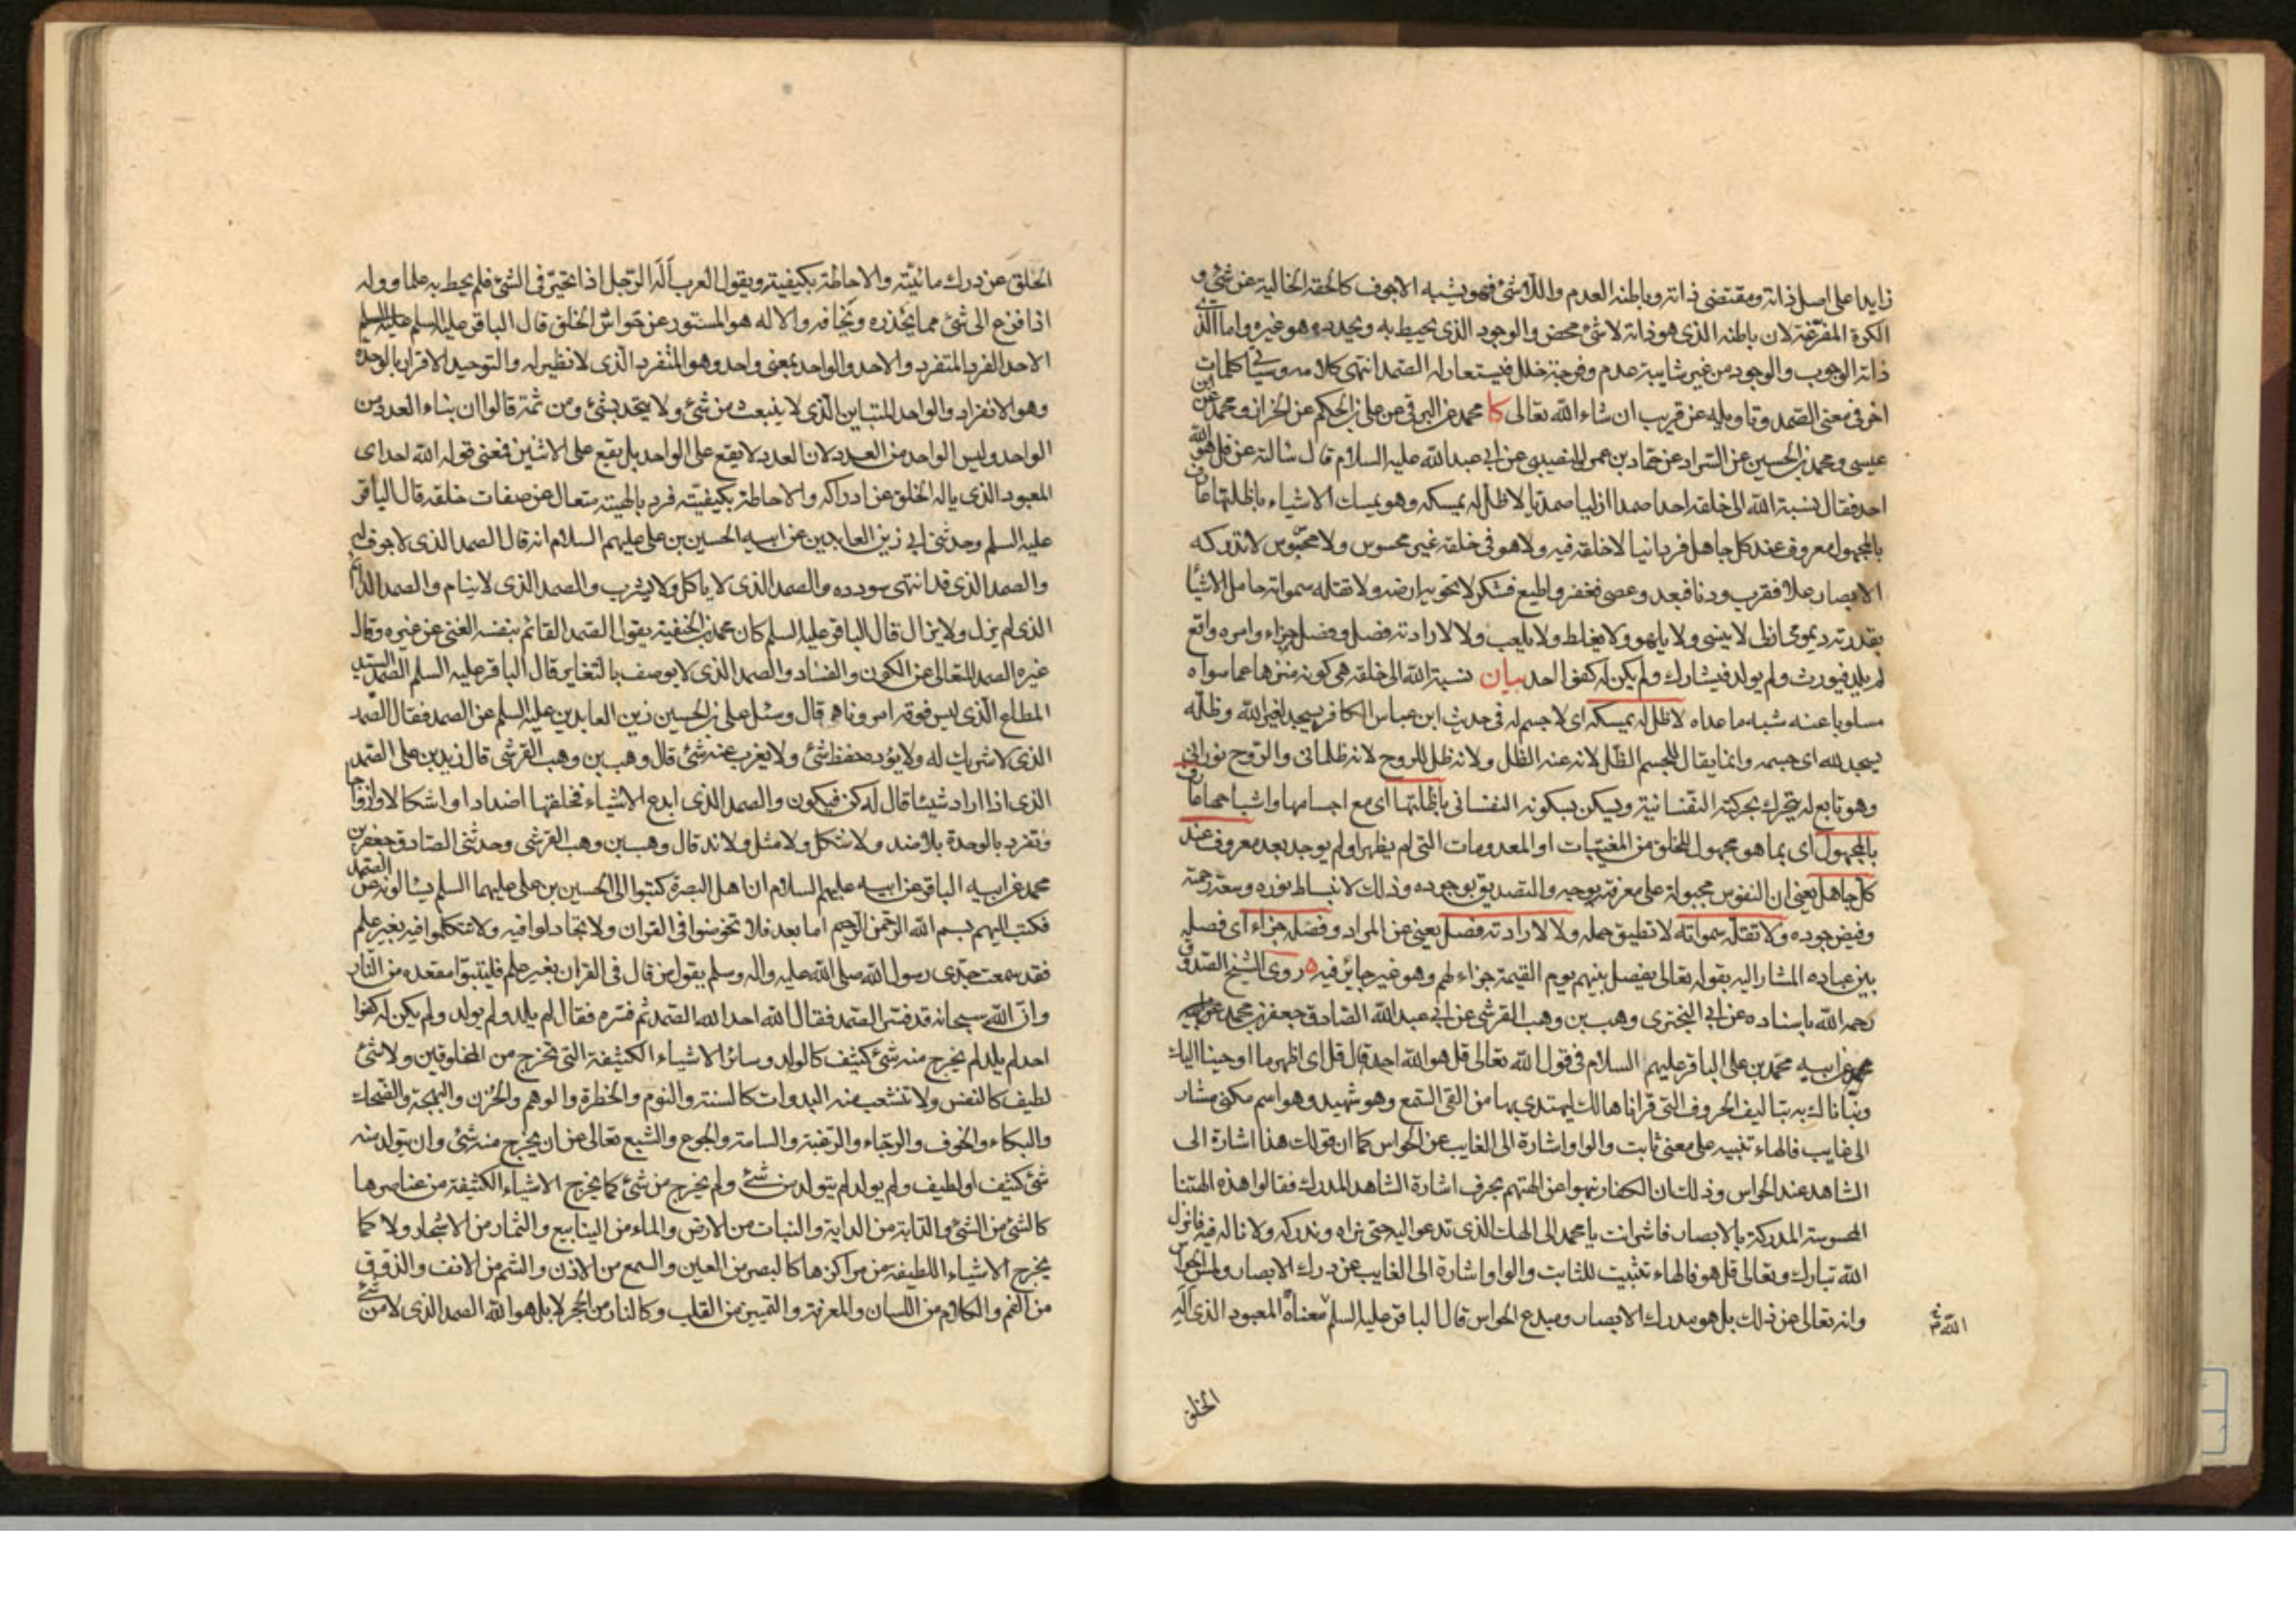 زايدا على اصل ذاته ومقتضى ذاته وباطنه العدم واللاشئ فهو يشبه الاجوف كالحقه الخالية عن شئ و
الكرة المفرغة لان باطنه الذى هو ذاته لاشئ محض والوجود الذى يحيط به ويحدده هو غيره واما الذى
ذاته الوجوب والوجود من غير شايبة عدم وفرجة خلل فيستعار له الصمد انتهى كلامه وسياتى كلمات
اخر فى معنى الصمد وتاويله عن قريب ان شاء الله تعالى كا محمد عن البرقى عن على بن الحكم عن الخراز ومحمد عن ابن
عيسى ومحمد بن الحسين عن السراد عن حماد بن عمرو النصيبى عن ابى عبد الله عليه السلام قال سالته عن قل هو الله
احد فقال نسبة الله الى خلقه احدا صمدا ازليا صمديا لا ظل له يمسكه وهو يمسك الاشياء باظلتها عارف
بالمجهول معروف عند كل جاهل فردانيا لا خلقه فيه ولا هو فى خلقه غير محسوس ولا مجسوس لا تدركه
الابصار علا فقرب ودنا فبعد وعصى فغفر واطيع فشكر لا تحويه ارضه ولا تقله سمواته حامل الاشيا
بقدرته ديمومى ازلى لا ينسى ولا يلهو ولا يغلط ولا يلعب ولا لارادته فصل وفصله جزاء وامره واقع
لم يلد فيورث ولم يولد فيشارك ولم يكن له كفوا احد بيان نسبة الله الى خلقه هى كونه منزها عما سواه
مسلوبا عنه شبه ما عداه لا ظل له يمسكه اى لا جسم له فى حديث ابن عباس الكافر يسجد لغير الله وظله
يسجد لله اى جسمه وانما يقال للجسم الظل لانه عنه الظل ولانه ظل للروح لانه ظلمانى والروح نورانى
وهو تابع له يتحرك بحركته النفسانية ويسكن بسكونه النفسانى باظلتها اى مع اجسامها واشباحها عارف
بالمجهول اى بما هو مجهول للخلق من المغيبات او المعدومات التى لم يظهر او لم يوجد بعد معروف عند
كل جاهل يعنى ان النفوس مجبولة على معرفته بوجه والتصديق بوجوده وذلك لانبساط نوره وسعة رحمته
وفيض جوده ولا تقله سمواته لا تطيق حمله ولا لارادته فصل يعنى عن المراد وفصله جزاء اى فصله
بين عباده المشار اليه بقوله تعالى يفصل بينهم يوم القيمة جزاء لهم وهو غير جائر فيه روى الشيخ الصدوق
رحمه الله باسناده عن ابى البخترى وهب بن وهب القرشى عن ابى عبد الله الصادق جعفر بن محمد عن ابيه
محمد عن ابيه محمد بن على الباقر عليهم السلام فى قول الله تعالى قل هو الله احد قال قل اى اظهر ما اوحينا اليك
ونبأناك به بتاليف الحروف التى قراناها لك ليهتدى بها من القى السمع وهو شهيد وهو اسم مكنى مشار
الى غايب فالهاء تنبيه على معنى ثابت والواو اشارة الى الغايب عن الحواس كما ان قولك هذا اشارة الى
الشاهد عند الحواس وذلك ان الكفار نبهوا عن الهتهم بحرف اشارة الشاهد المدرك فقالوا هذه الهتنا
المحسوسة المدركة بالابصار فاشر انت يا محمد الى الهك الذى تدعو اليه حتى نراه وندركه ولا ناله فيه فانزل
الله تبارك وتعالى قل هو فالهاء تثبيت للثابت والواو اشارة الى الغايب عن درك الابصار ولمس الحواس
وانه تعالى عن ذلك بل هو مدرك الابصار ومبدع الحواس قال الباقر عليه السلم معناه المعبود الذى اله
الخلق
الخلق عن درك مائيته والاحاطة بكيفيته ويقول العرب اله الرجل اذا تحير فى الشئ فلم يحط به علما ووله
اذا فزع الى شئ مما يحذره ويخافه والاله هو المستور عن حواس الخلق قال الباقر عليه السلم
الاحد الفرد المتفرد والاحد والواحد بمعنى واحد وهو المتفرد الذى لا نظير له والتوحيد الاقرار بالوحدة
وهو الانفراد والواحد المتباين الذى لا ينبعث من شئ ولا يتحد بشئ ومن ثمة قالوا ان بناء العدد من
الواحد وليس الواحد من العدد لان العدد لا يقع على الواحد بل يقع على الاثنين فمعنى قوله الله احد اى
المعبود الذى ياله الخلق عن ادراكه والاحاطة بكيفيته فرد بالهيته متعال عن صفات خلقه قال الباقر
عليه السلم وحدثنى ابى زين العابدين عن ابيه الحسين بن على عليهم السلام انه قال الصمد الذى لا جوف له
والصمد الذى قد انتهى سودده والصمد الذى لا ياكل ولا يشرب والصمد الذى لا ينام والصمد الدائم
الذى لم يزل ولا يزال قال الباقر عليه السلم كان محمد بن الحنفية يقول الصمد القائم بنفسه الغنى عن غيره وقال
غيره الصمد المتعالى عن الكون والفساد والصمد الذى لا يوصف بالتغاير قال الباقر عليه السلم الصمد السيد
المطاع الذى ليس فوقه امر وناهى قال وسئل على بن الحسين زين العابدين عليه السلم عن الصمد فقال الصمد
الذى لا شريك له ولا يؤده حفظ شئ ولا يعزب عنه شئ قال وهب بن وهب القرشى قال زيد بن على الصمد
الذى اذا اراد شيئا قال له كن فيكون والصمد الذى ابدع الاشياء فخلقها اضدادا واشكالا وازواجا
وتفرد بالوحدة بلا ضد ولا شكل ولا مثل ولا ند قال وهب بن وهب القرشى وحدثنى الصادق جعفر بن
محمد عن ابيه الباقر عن ابيه عليهم السلام ان اهل البصرة كتبوا الى الحسين بن على عليهما السلم يسالونه عن الصمد
فكتب اليهم بسم الله الرحمن الرحيم اما بعد فلا تخوضوا فى القران ولا تجادلوا فيه ولا تتكلموا فيه بغير علم
فقد سمعت جدى رسول الله صلى الله عليه واله وسلم يقول من قال فى القران بغير علم فليتبوا مقعده من النار
وان الله سبحانه قد فسر الصمد فقال الله احد الله الصمد ثم فسره فقال لم يلد ولم يولد ولم يكن له كفوا
احد لم يلد لم يخرج منه شئ كثيف كالولد وسائر الاشياء الكثيفة التى تخرج من المخلوقين ولا شئ
لطيف كالنفس ولا تتشعب منه البدوات كالسنة والنوم والخطرة والوهم والحزن والبهجة والضحك
والبكاء والخوف والرجاء والرغبة والسامة والجوع والشبع تعالى عن ان يخرج منه شئ وان يتولد منه
شئ كثيف او لطيف ولم يولد لم يتولد من شئ ولم يخرج من شئ كما يخرج الاشياء الكثيفة من عناصرها
كالشئ من الشئ والدابة من الدابة والنبات من الارض والماء من الينابيع والثمار من الاشجار ولا كما
يخرج الاشياء اللطيفة من مراكزها كالبصر من العين والسمع من الاذن والشم من الانف والذوق
من الفم والكلام من اللسان والمعرفة والتمييز من القلب وكالنار من الحجر لا بل هو الله الصمد الذى لا من شئ